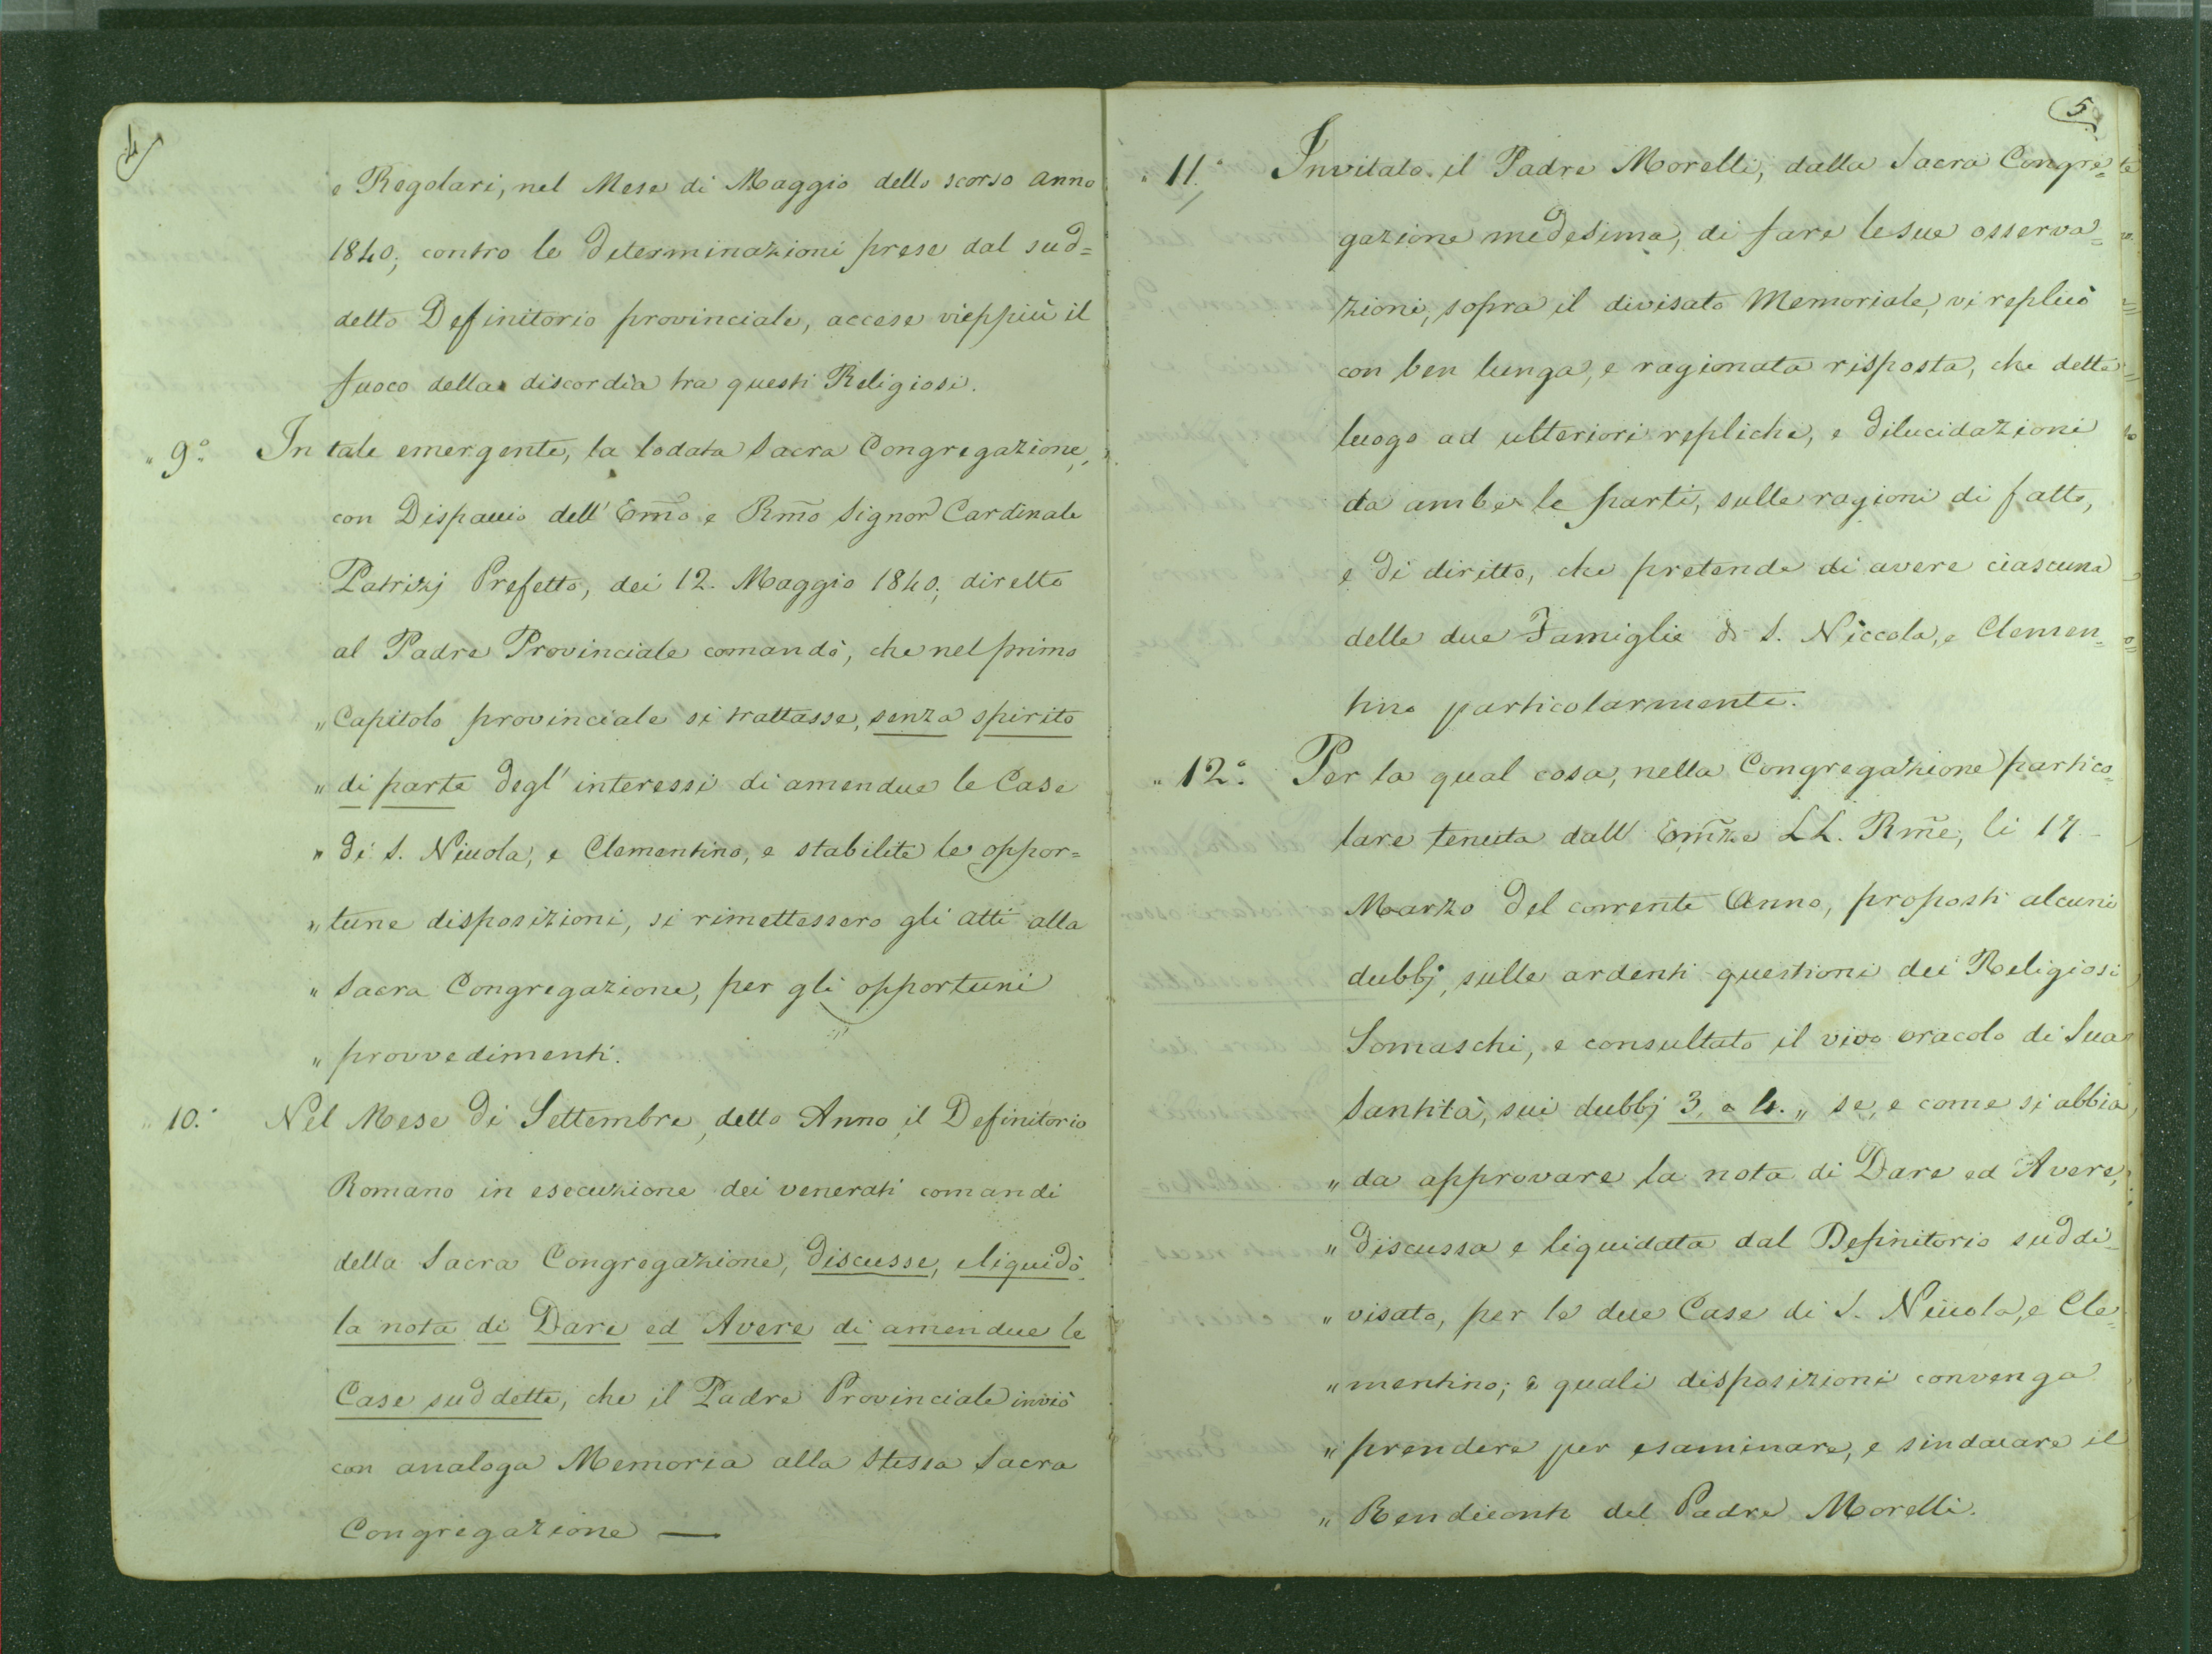 4
e Regolari, nel Mese di Maggio dello scorso anno
1840; contro le determinazioni prese dal sud=
detto Definitorio provinciale, accese vieppiù il
fuoco della discordia tra questi Religiosi.
" 9.° In tale emergente, la lodata Sacra Congregazione,
con Dispaccio dell' Em̃o e Rm̃o Signor Cardinale
Patrizj Prefetto, dei 12. Maggio 1840; diretto
al Padre Provinciale comandò, che nel primo
" Capitolo provinciale si trattasse, senza spirito
" di parte degl' interessi di amendue le Case
" di S. Niccola, e Clementino, e stabilite le oppor=
" tune disposizioni, si rimettessero gli atti alla
" Sacra Congregazione, per gli opportuni
" provvedimenti.
" 10.° Nel Mese di Settembre, detto Anno, il Definitorio
Romano in esecuzione dei venerati comandi
della Sacra Congregazione, discusse, e liquidò
la nota di Dare ed Avere di amendue le
Case suddette, che il Padre Provinciale inviò
con analoga Memoria alla stessa Sacra
Congregazione —
5.
" 11.° Invitato il Padre Morelli, dalla Sacra Congre=
gazione medesima, di fare le sue osserva=
zioni, sopra il divisato Memoriale, vi replicò
con ben lunga, e ragionata risposta, che dette
luogo ad ulteriori repliche, e dilucidazioni
da ambe le parti, sulle ragioni di fatto,
e di diritto, che pretende di avere ciascuna
delle due Famiglie di S. Niccola, e Clemen=
tino particolarmente.
" 12.° Per la qual cosa, nella Congregazione partico=
lare tenuta dall' Em̃ze LL. Rm̃e, li 17
Marzo del corrente Anno, proposti alcuni
dubbj, sulle ardenti questioni dei Religiosi
Somaschi, e consultato il vivo oracolo di Sua
Santità, sui dubbj 3. e 4. " se, e come si abbia
" da approvare la nota di Dare ed Avere,
" discussa e liquidata dal Definitorio suddi=
" visato, per le due Case di S. Niccola, e Cle=
" mentino; e quali disposizioni convenga
" prendere per esaminare, e sindacare il
" Rendiconto del Padre Morelli.